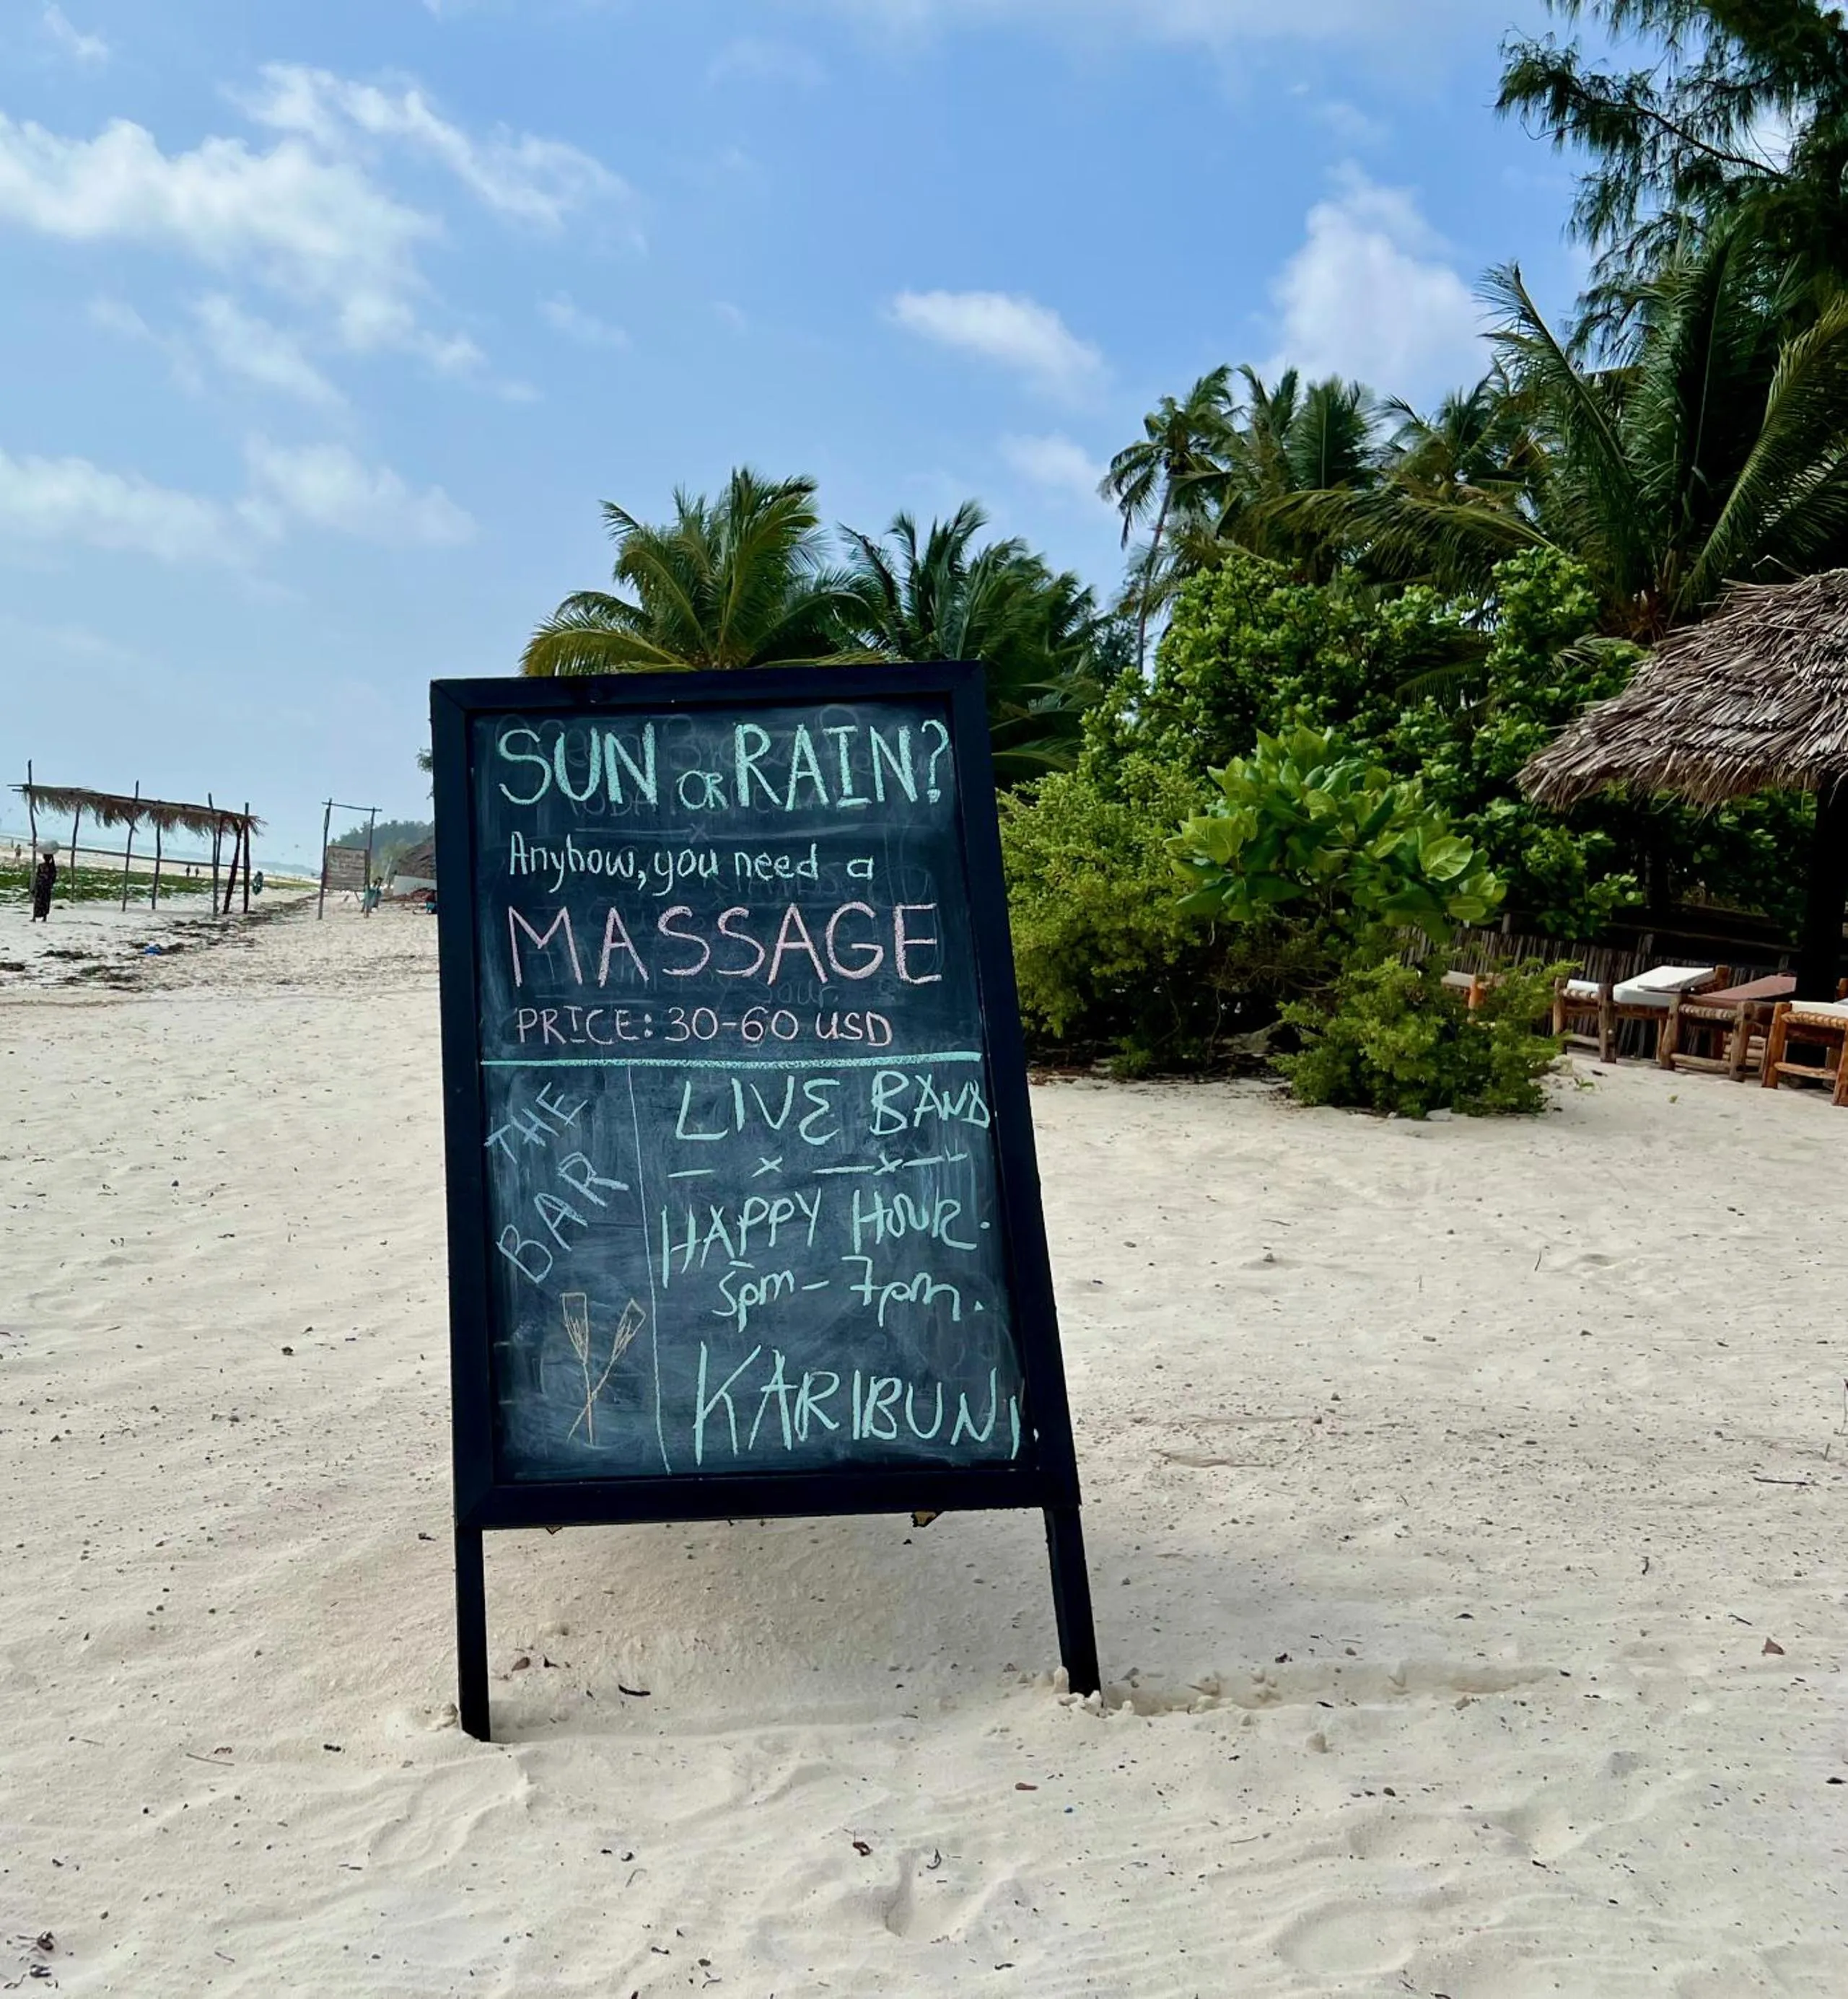 SUN OR RAIN?
Anyhow, you need a
MASSAGE
PRICE: 30-60 USD
THE
BAR
LIVE BAND
HAPPY HOUR.
5pm - 7pm.
KARIBUNI